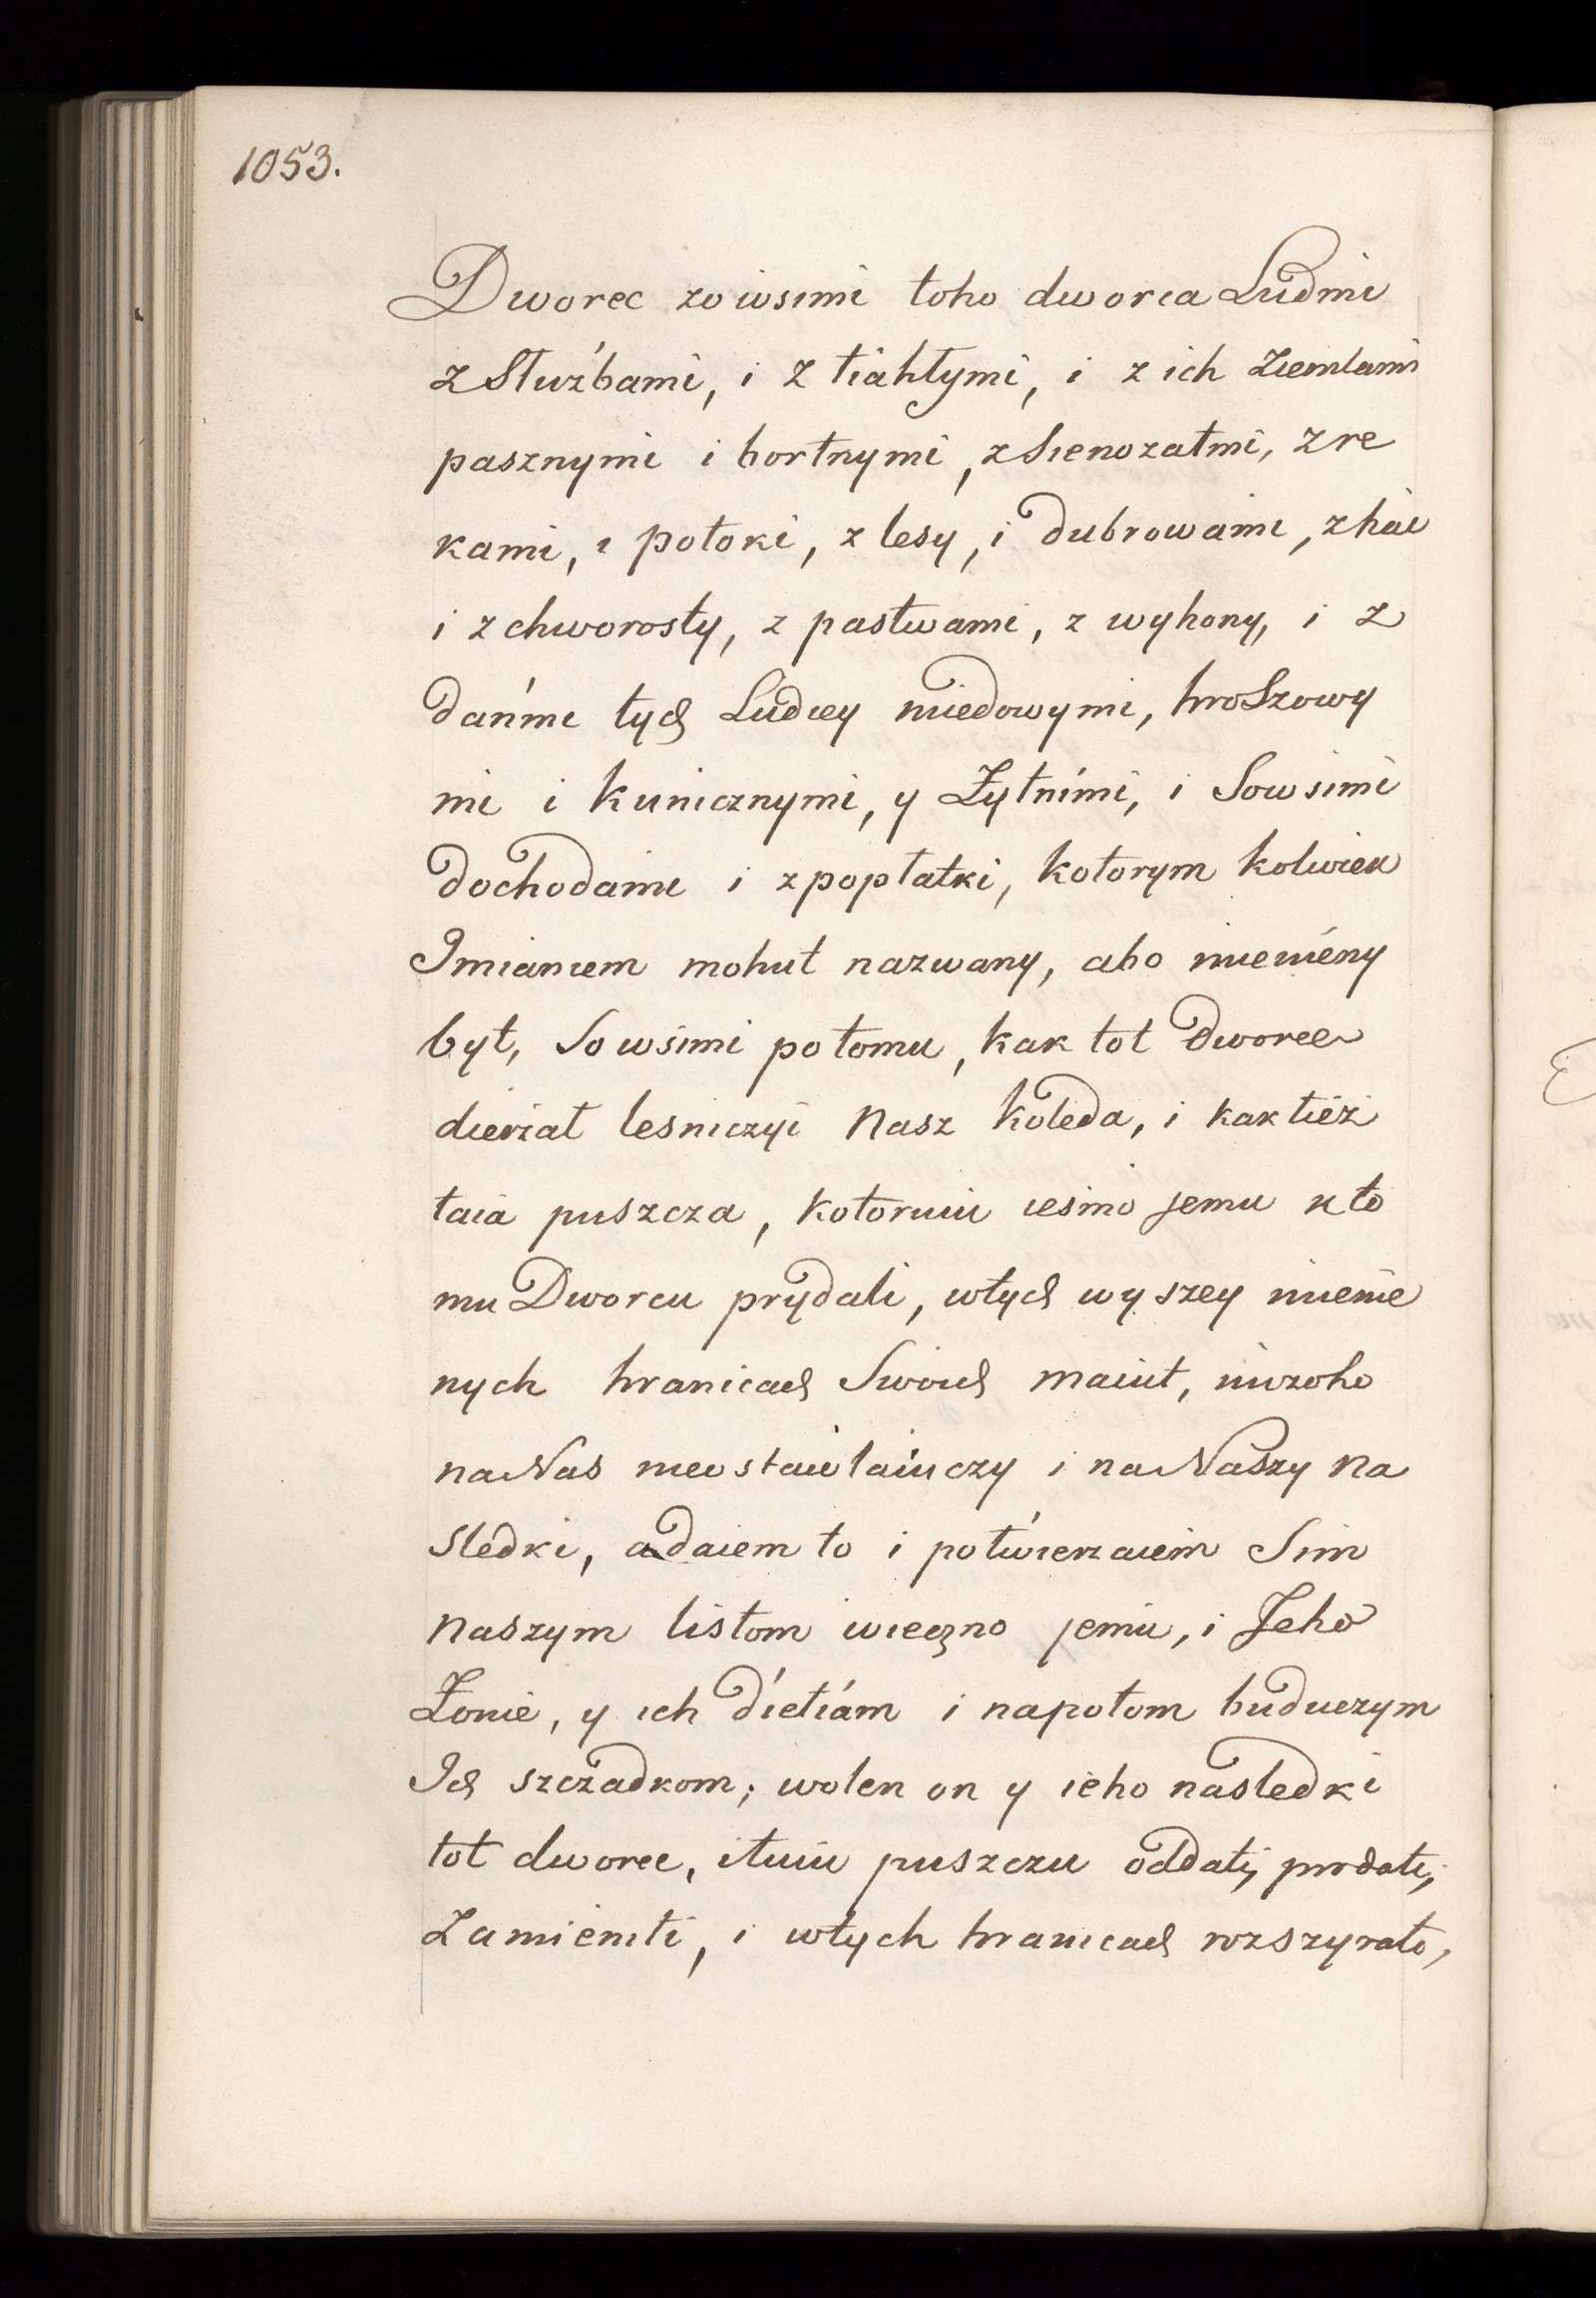 1053.
Dworec zowsimi toho dworca Ludmi
z Służbami, i z tiahłymi, i z ich ziemlami
pasznymi i bortnymi, z Sienozatmi, z re
kami, i potoki, z lesy, i dubrowami, z hai
i z chworosty, z pastwami, z wyhony, i z
dańmi tych Ludiey miedowymi, hroszowy
mi i kunicznymi, y Żytnimi, i Sowsimi
dochodami i z popłatki, kotorym kolwiek
Imianiem mohut nazwany, abo mienieny
byt, So wsimi potomu, kak tot dworec
dierżał lesniczyi nasz Koleda, i kak tież
taia puszcza, kotoruiu iesmo jemu kto
mu Dworcu prydali, wtych wyszey mienie
nych hranicach Swoich maiut, niczoho
na Nas nieostawlaiuczy i na Naszy na
sledki, a daiem to i potwierżaiem Sim
naszym listom wieczno jemu, i Jeho
Żonie, y ich dietiám i napotom buduczym
Ich szczadkom; wolen on y ieho nasledki
tot dworec, i tuiu puszczu oddati, prodati,
zamieniti, i wtych hranicach rozszyrati,